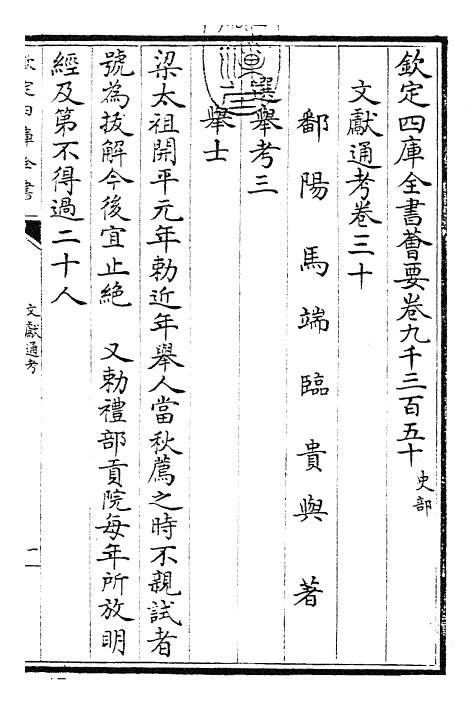 欽定四庫全書薈要卷九千三百五十 史部
文獻通考卷三十
鄱陽馬端臨貴與著
選舉考三
舉士
梁太祖開平元年勅近年舉人當秋薦之時不親試者
號為拔解今後宜止絶 又勅禮部貢院每年所放明
經及第不得過二十人
欽定四庫全書
文獻通考
一